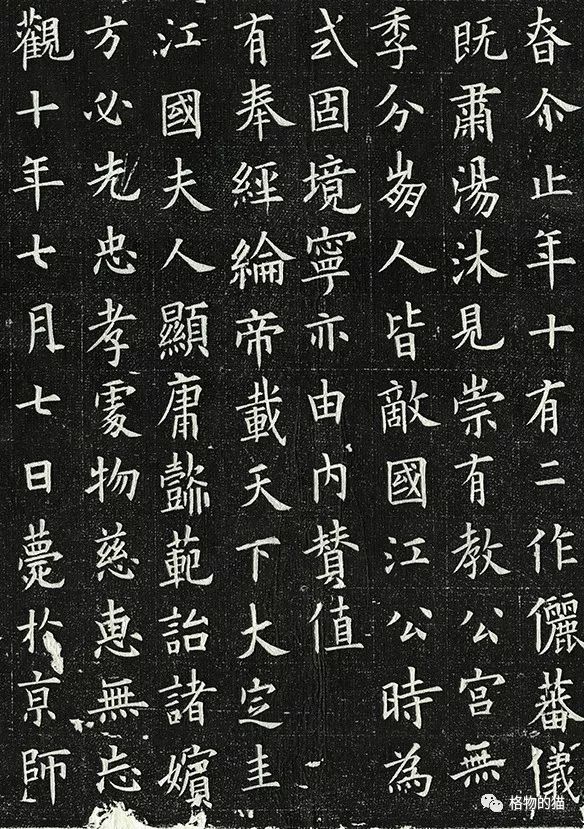 昚尒止年十有二作儷蕃儀
既肅湯沐見崇有教公宮無
季分崤人皆敵國江公時為
式固境寧亦由內贊值
有奉經綸帝載天下大定圭
江國夫人顯庸懿範詒諸嬪
方必先忠孝處物慈惠無忘
觀十年七月七日薨於京師
格物的猫